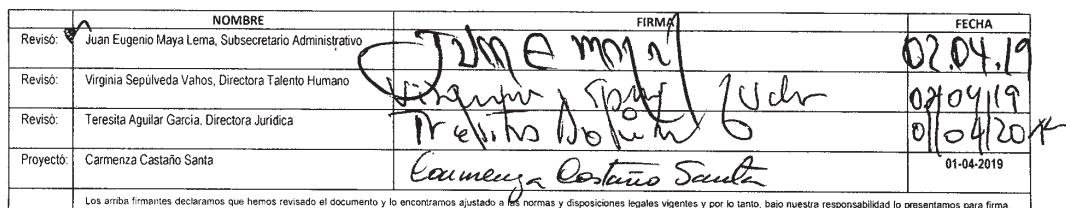 NOMBRE FIRMA FECHA
Revisó: Juan Eugenio Maya Lema, Subsecretario Administrativo 02.04.19
Revisó: Virginia Sepúlveda Vahos, Directora Talento Humano 02/04/19
Revisó: Teresita Aguilar García, Directora Jurídica Teresita Aguilar 01/04/20
Proyectó: Carmenza Castaño Santa Carmenza Castaño Santa 01-04-2019
Los arriba firmantes declaramos que hemos revisado el documento y lo encontramos ajustado a las normas y disposiciones legales vigentes y por lo tanto, bajo nuestra responsabilidad lo presentamos para firma.